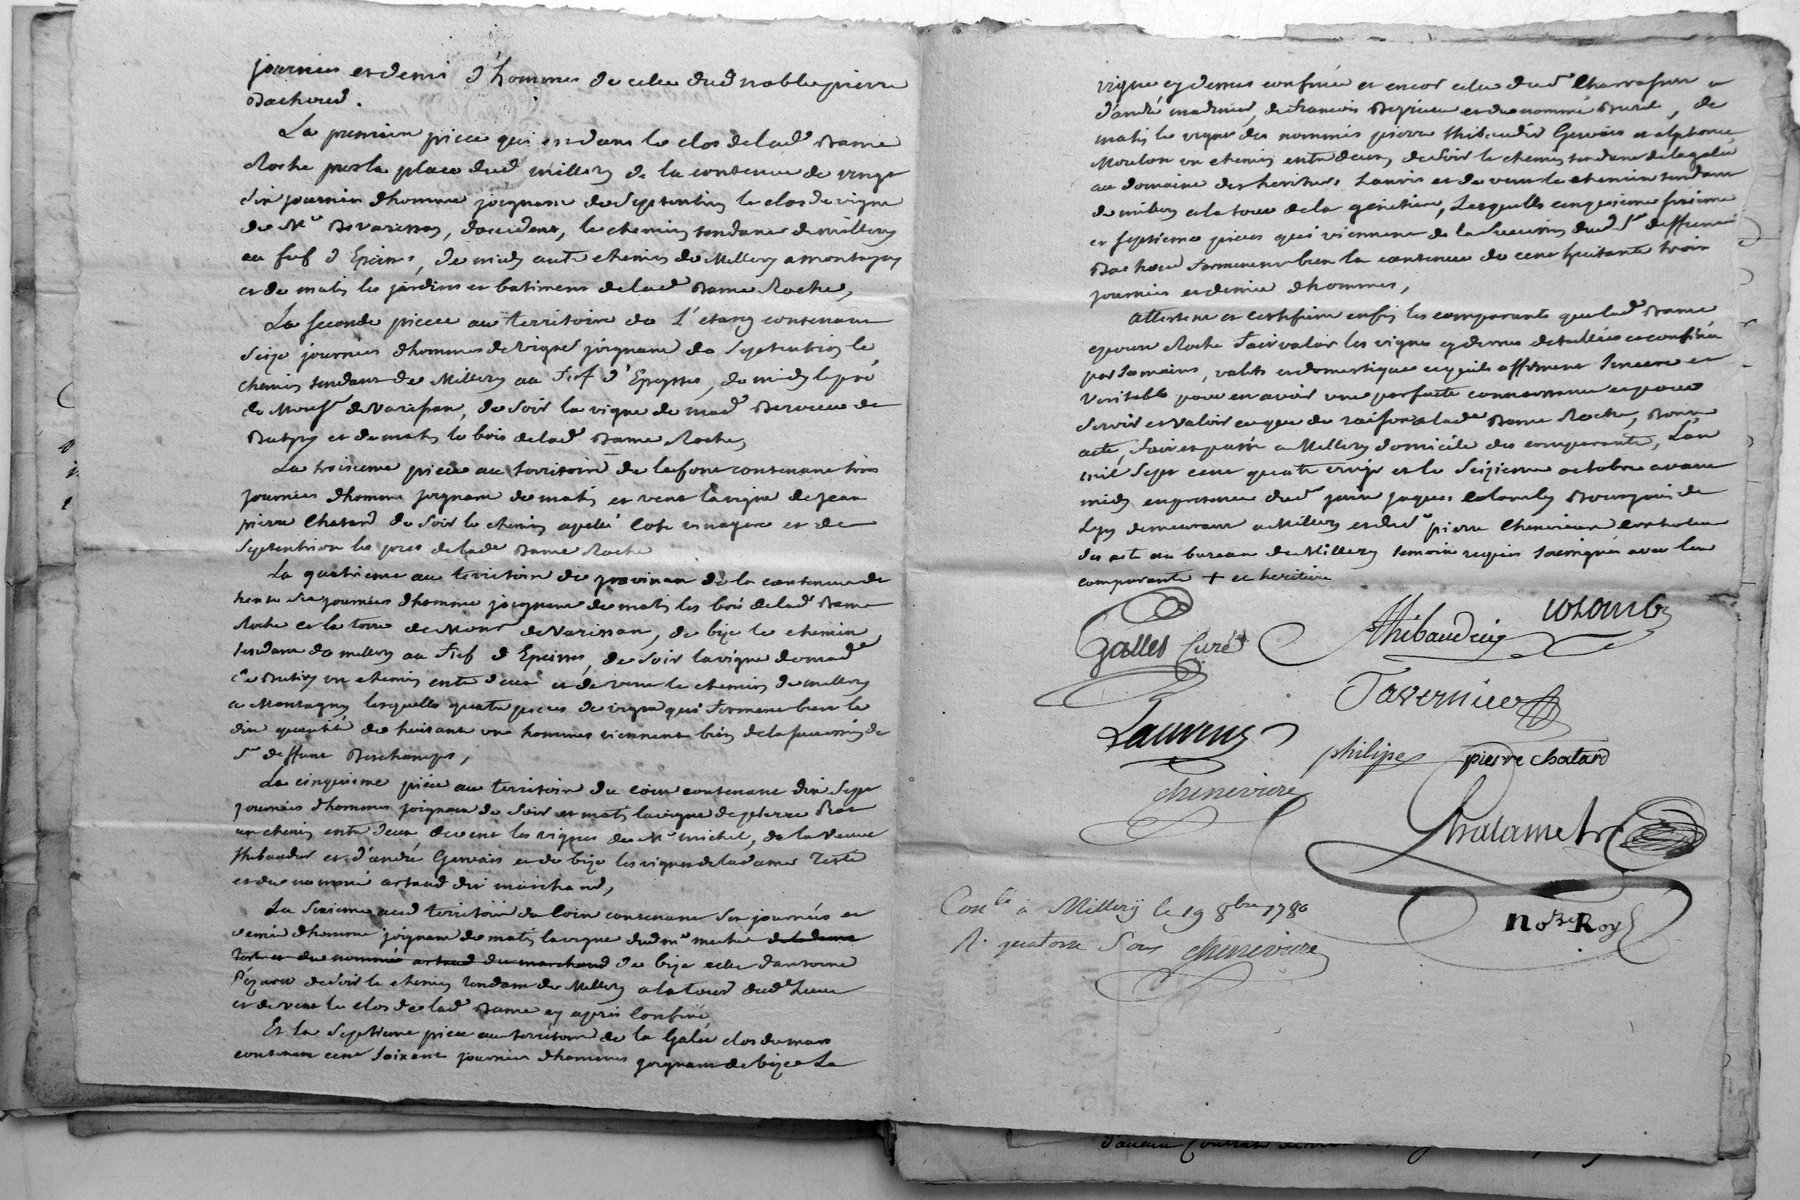 journées et demi d'hommes de celle dud noble pierre
Bachoud.
La premiere piece qui est dans le clos de lad<sup>e</sup> Dame
Roche pres la place dud millery de la contenue de vingt
six journées d'homme joignant de septentrion le clos de vigne
de M<sup>r</sup> De varissan, d'occident, le chemin tendant de millery
au fief d'Epeisses, de midy autre chemin de Millery a montagny
et de matin les jardins et batimens de lad<sup>e</sup> Dame Roche,
La seconde piece au territoire de L'etang contenant
seize journées d'hommes de vigne joignant de septentrion le
chemin tendant de Millery au fief d'Epeysses, de midy le pré
de Mons<sup>r</sup> de Varissan, de soir la vigne de mad<sup>e</sup> Dervieu de
et de matin le bois de lad<sup>e</sup> Dame Roche,
La troisieme piece au territoire de la font contenant trois
journées d'homme joignant de matin et vent la vigne de jean
pierre Chatard de soir le chemin apellé Cote vinagere et de
septentrion les prés de lad<sup>e</sup> Dame Roche
La quatrieme au territoire de gravinan de la contenue de
trente six journées d'homme joignant de matin les bois de lad<sup>e</sup> Dame
Roche et la terre de Mons<sup>r</sup> de Varissan, de bize le chemin
tendant de millery au fief d'Epeisses, de soir la vigne de mad<sup>e</sup>
un chemin entre deux et de vent le chemin de millery
a Montagny lesquelles quatre pieces de vigne qui forment bien la
dite quantité de huitante une hommes viennent bien de la succession de
S<sup>r</sup> deffunt Deschamps,
La cinquieme piece au territoire du coin contenant dix sept
journées d'hommes joignant de soir et matin la vigne de pierre
un chemin entre deux de vent les vignes de M<sup>r</sup> michel, de la veuve
thibaudier et d'andré Gervais et de bize les vignes de la dame Testé
et du nommé artaud du marchand,
La sixieme aud territoire du Coin contenant six journées et
demie d'homme joignant de matin la vigne dud m<sup>r</sup> michel de la dame
Testé et du nommé artaud du marchand de bize celle d'antoine
de soir le chemin tendant de Millery a la tour dud lieu
et de vent le clos de lad<sup>e</sup> Dame cy après Confiné
Et la septieme piece au territoire de la Galée clos de murs
contenant cent soixante journées d'hommes joignant de bize la
vigne cy dessus confinée et encor celle du d<sup>t</sup>
d'andré de francois Dezrieux et du nommé Buret, de
matin la vigne des nommés pierre thibaudier Gervais et alphonse
Mouton un chemin entre deux, de soir le chemin tendant de la galée
au domaine des heritiers Lauris et de vent le chemin tendant
de millery a la tour de la genetiere, Lesquelles cinquieme sixieme
et septieme pieces qui viennent de la succession dud S<sup>r</sup> deffunt
Bachoud forment bien la contenue de cent huitante trois
journées et demie d'hommes,
attestent et certifient enfin les comparants que lad<sup>e</sup> Dame
epoux Roche fait valoir les vignes cy dessus detaillées et confinées
par ses mains, valets et domestiques ce qu'ils affirment sincere et
veritable pour en avoir une parfaite connoissance et pour
servir et valoir ce que de raison a lad<sup>e</sup> Dame Roche, Donné
acte, fait et passé a Millery domicile des comparants, L'an
mil sept cent quatre vingt et le seizieme octobre avant
midy en presence dud<sup>t</sup> jean jaques Colomby Bourgeois de
Lyon demeurant a Millery et de S<sup>r</sup> pierre Cheneviere Controleur
des actes au bureau de Millery temoins requis soussignés avec les
comparants + et heritiers
Galles Curé
Thibaudier
Colomby
Tavernier
Laurens
philipe
pierre chatard
cheneviere
Chalamet
No<sup>re</sup> Roy<sup>l</sup>
Con<sup>lé</sup> a Millery le 19 8bre 1780
R. quatorze sous cheneviere